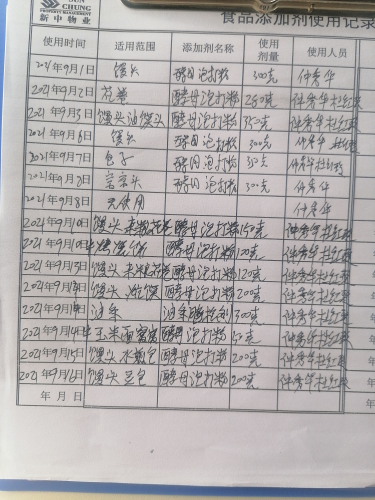 SUN CHUNG
PROPERTY MANAGEMENT
新中物业
食品添加剂使用记录
使用时间 适用范围 添加剂名称 使用剂量 使用人员
2021年9月1日 馒头 酵母泡打粉 300克 仲秀华
2021年9月2日 花卷 酵母泡打粉 250克 仲秀华杜红
2021年9月3日 馒头油馍头 酵母泡打粉 350克 仲秀华杜红
2021年9月6日 馒头 酵母泡打粉 300克 仲秀华
2021年9月7日 包子 酵母泡打粉 仲秀华杜红
2021年9月8日 头 酵母泡打粉 300克 仲秀华
2021年9月8日 无使用 仲秀华
2021年9月10日 馒头 酵母泡打粉150克 仲秀华杜红
2021年9月10日 饼 酵母泡打粉100克 仲秀华杜红
2021年9月13日 馒头 酵母泡打粉120克 仲秀华杜红
2021年9月 日 馒头 酵母泡打粉200克 仲秀华杜红
2021年9月 日 油条 油条 300克 仲秀华杜红
2021年9月14日 玉米面窝窝 酵母泡打粉 50克 仲秀华杜红
2021年9月15日 馒头水煎包 酵母泡打粉200克 仲秀华杜红
2021年9月16日 馒头豆包 酵母泡打粉200克 仲秀华杜红
年 月 日